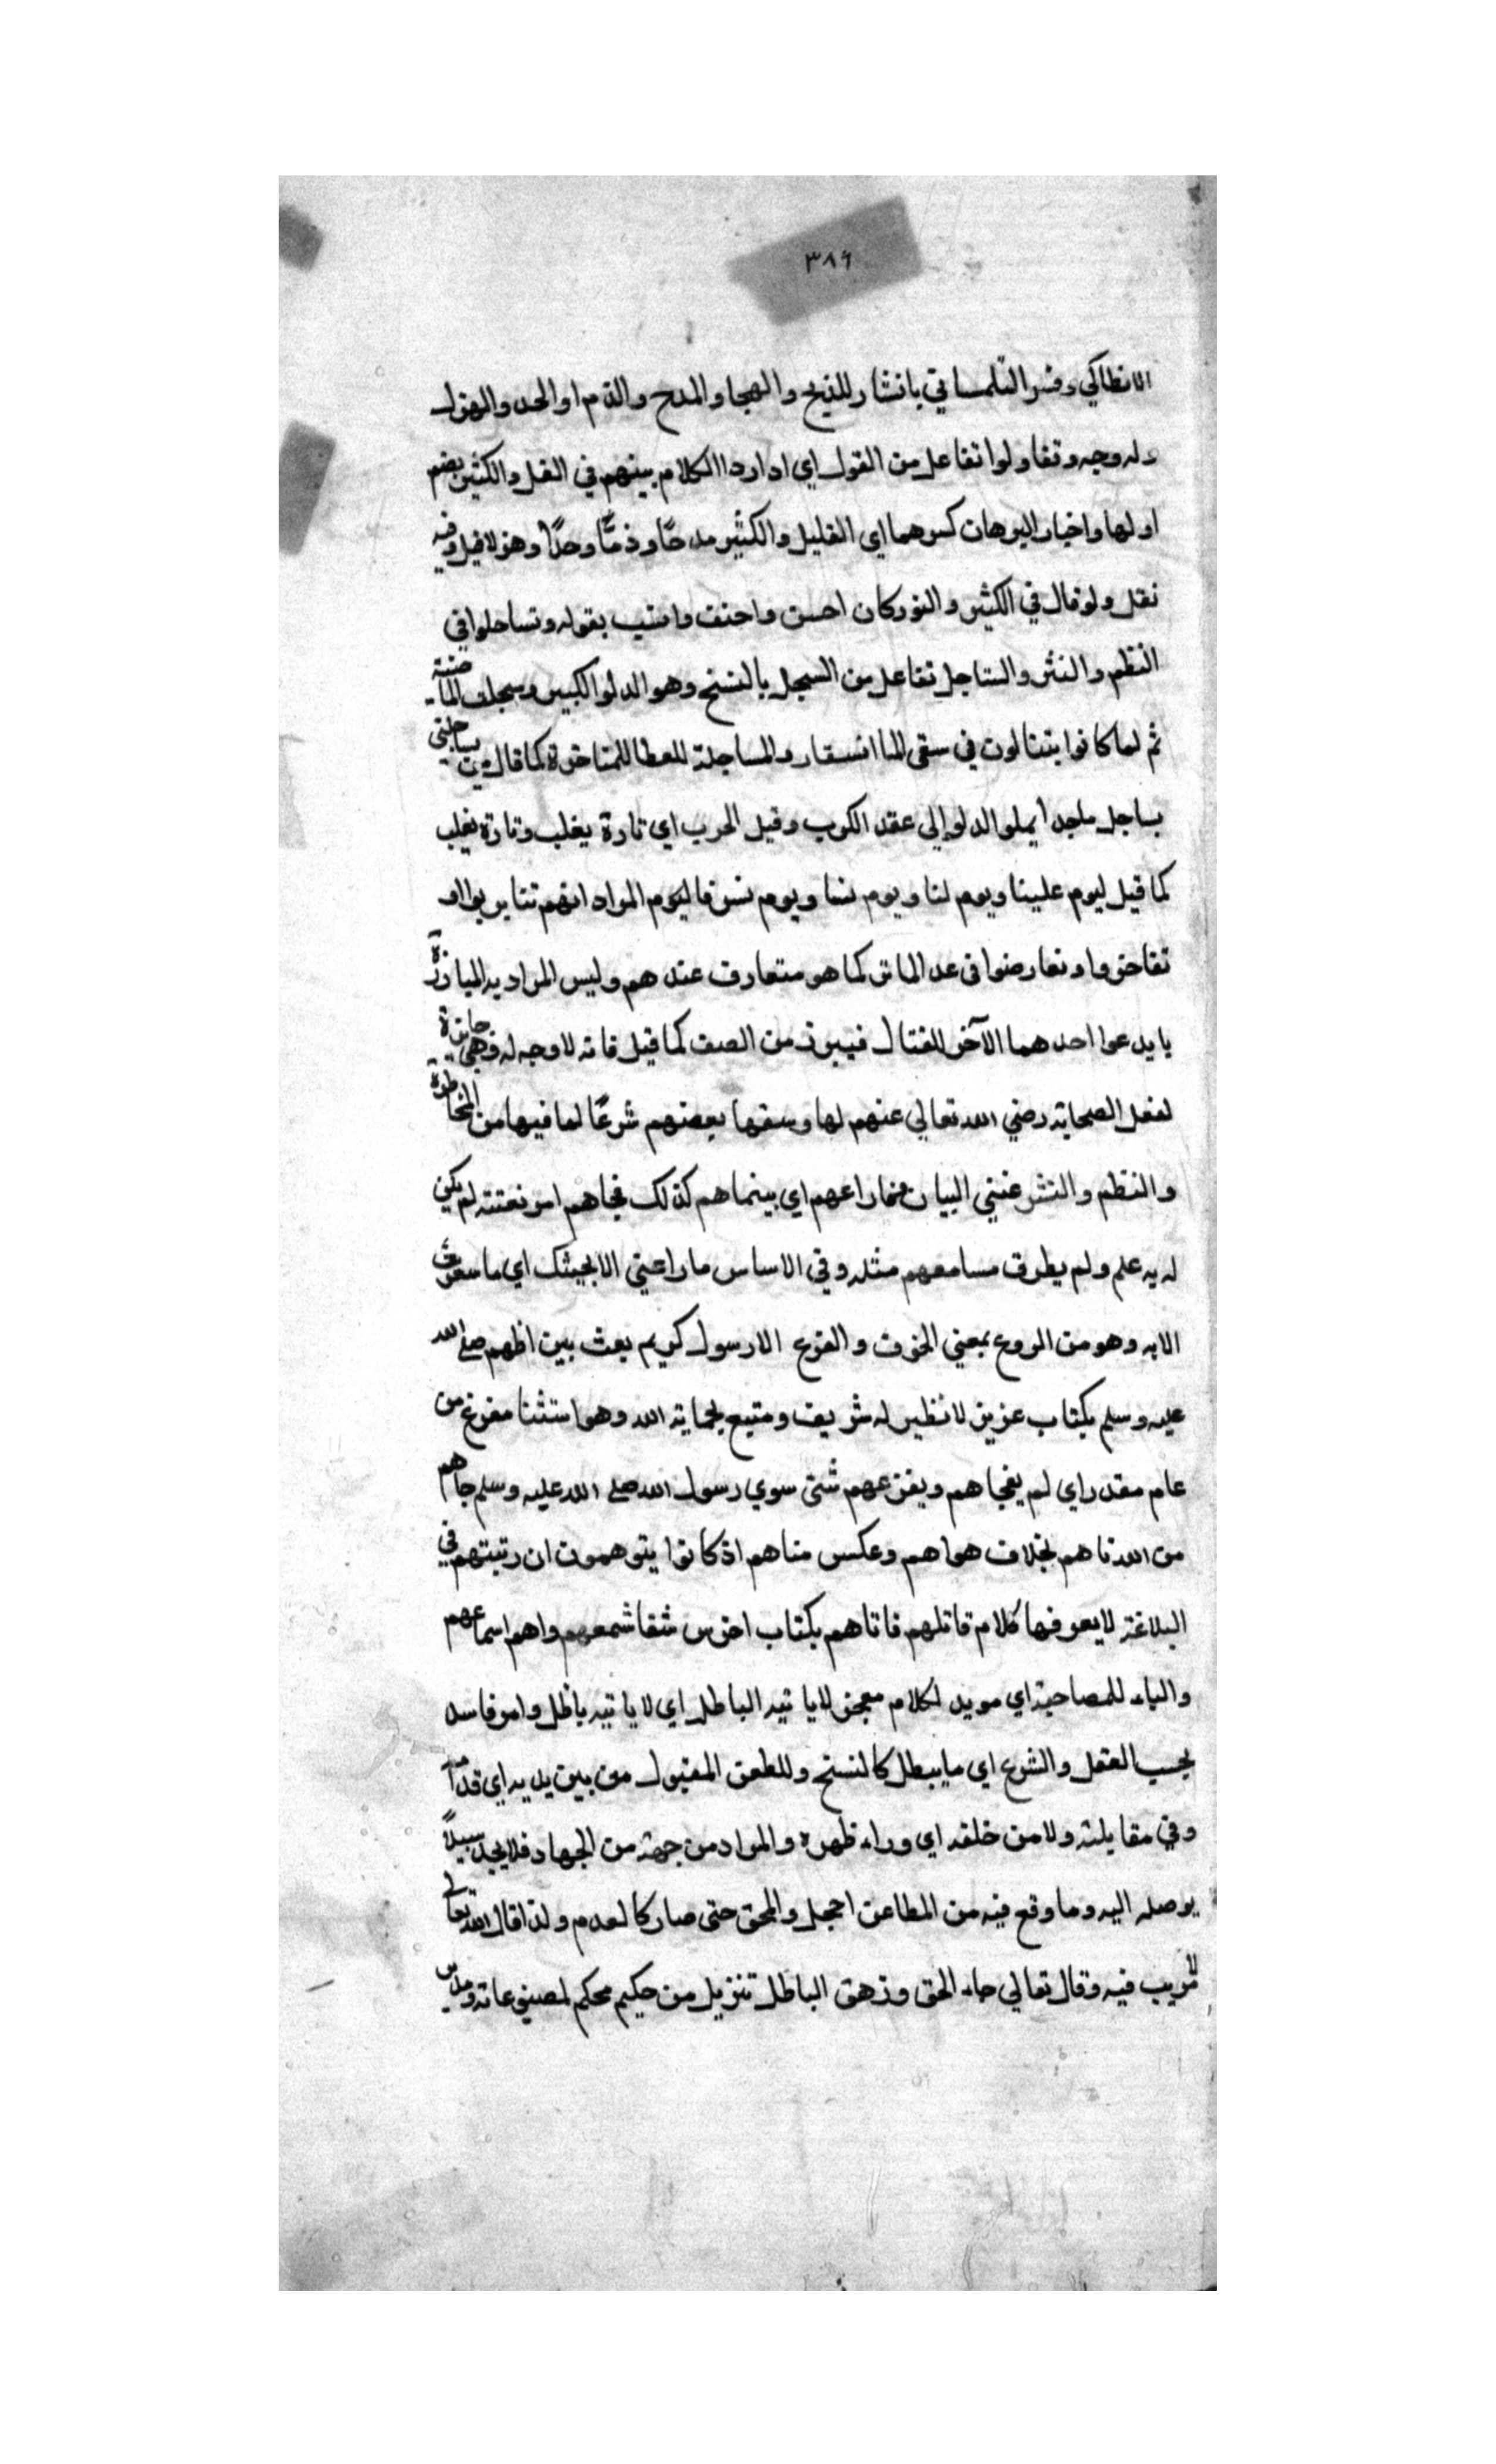 ٣٨٤
الانطاكي وفسر التلمساني بانشار للذيح والهجا والمدح والذم او الجد والهزل
وله وجه وتقاولوا تفاعل من القول اي اداردا الكلام بينهم في القل والكثر بضم
اولها واختار البرهان كسرهما اي القليل والكثير مدحًا وذمًّا وجدًّا وهزلا قيل وفيه
نقل ولو قال في الكثير والنزر كان احسن واخف وانسب بقوله وتساجلوا في
النظم والنثر والتساجل تفاعل من السجل بالفتح وهو الدلو الكبير وسجلت الما صببته
ثم لما كانوا يتنالون في سقي الما استعار والمساجلة للعطا للمتاخرة كما قال من يساجلني
يساجل ماجدا يملو الدلو إلى عقد الكرب وقيل الحرب اي تارة يغلب وتارة يغلب
كما قيل ليوم علينا ويوم لنا ويوم نسا ويوم نسر فاليوم المراد انهم تنابريوااو
تفاخروا وتعارضوا في عد الماثر كما هو متعارف عندهم وليس المراد به المبارزة
يا يدعوا احدهما الآخر للقتال فيبرز من الصف كما قيل فانه لا وجه له وهي جايزة
لفعل الصحابة رضي الله تعالي عنهم لها ومنعها بعضهم شرعًا لما فيها من المخاطرة
والنظم والنثر غنيي البيان فما راعهم اي بينماهم كذلك فجاهم امر بغتته لم يكن
له به علم ولم يطرق مسامعهم مثله وفي الاساس ما راعني الا بجيئك اي ما شعرت
الا به وهو من الروع بمعني الخوف والفزع الا رسول كريم بعث بين اظهرهم صلى الله
عليه وسلم بكتاب عزيز لا نظير له شريف ومنيع بحماية الله وهو استثنا مفرغ من
عام مقدر اي لم يفجاهم ويفزعهم شئ سوي رسول الله صلى الله عليه وسلم جاهم
من الله تاهم بخلاف هواهم وعكس مناهم اذ كانوا يتوهمون ان رتبتهم في
البلاغة لا يعرفها كلام قاتلهم فاتاهم بكتاب اخرس شقاشمعهم واهم اسماعهم
والباء للمصاحبة اي مويد لكلام معجز لا ياتيه الباطل اي لا ياتيه باطل وامر فاسد
بحسب العقل والشرع اي ما يبطل كالنسخ وللطعن المقبول من بين يديه اي قدامه
وفي مقابلته ولا من خلفه اي وراء ظهره والمراد من جهة من الجهاد فلا يجد سبيلاً
يوصله اليه وما وقع فيه من المطاعن احجل والمحق حتى صار كالعدم ولذا قال الله تعالى
لا ريب فيه وقال تعالي جاء الحق وزهق الباطل تنزيل من حكيم محكم لمصنوعاته